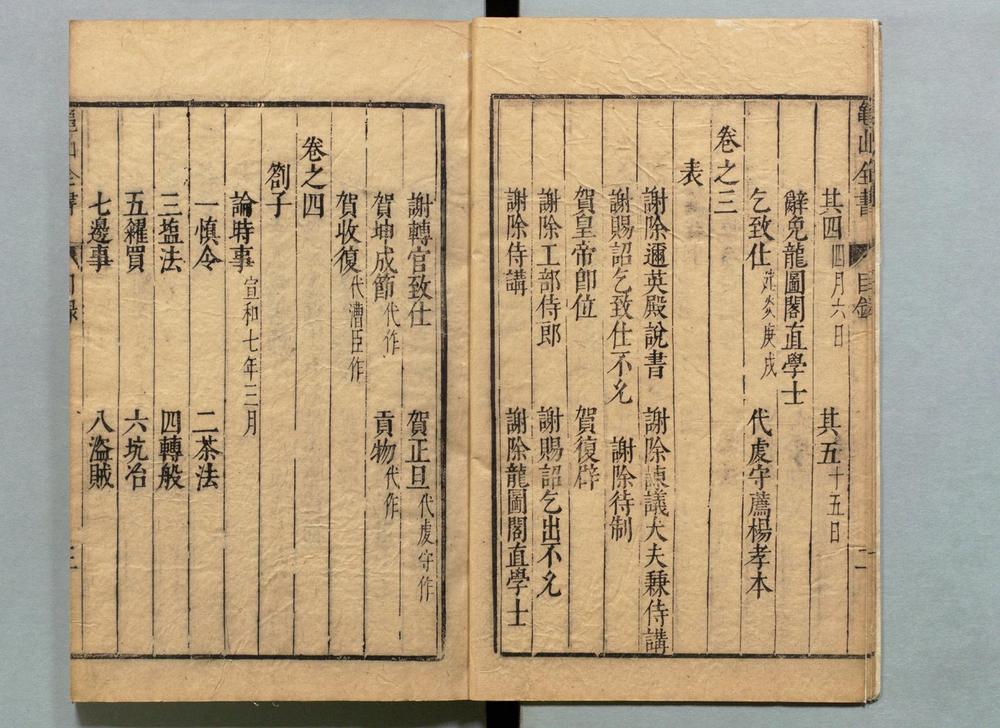 龜山全書 目錄 二
其四 四月六日 其五 十五日
辭免龍圖閣直學士
乞致仕 建炎庚戌 代虔守薦楊孝本
卷之三
表
謝除邇英殿說書 謝除諫議大夫兼侍講
謝賜詔乞致仕不允 謝除待制
賀皇帝卽位 賀復辟
謝除工部侍郎 謝賜詔乞出不允
謝除侍講 謝除龍圖閣直學士
謝轉官致仕 賀正旦 代虔守作
賀坤成節 代作 貢物 代作
賀收復 代漕臣作
卷之四
劄子
論時事 宣和七年三月
一慎令 二茶法
三塩法 四轉般
五糴買 六坑冶
七邊事 八盜賊